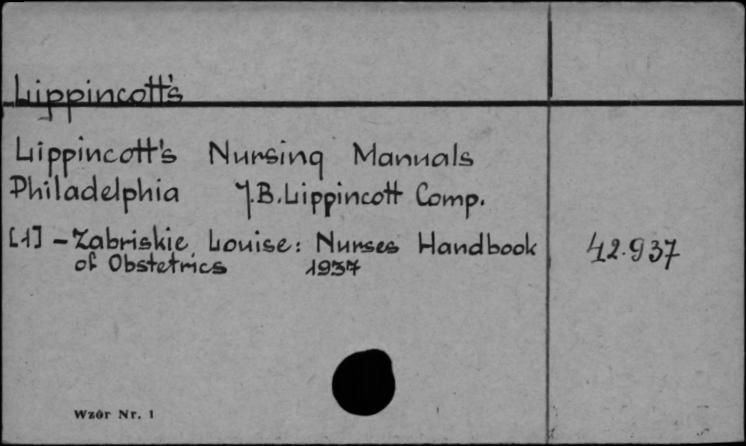 Lippincott's
Lippincott's Nursing Manuals
Philadelphia J.B.Lippincott Comp.
[1] - Zabriskie, Louise: Nurses Handbook 42.937
of Obstetrics 1937
Wzór Nr. 1